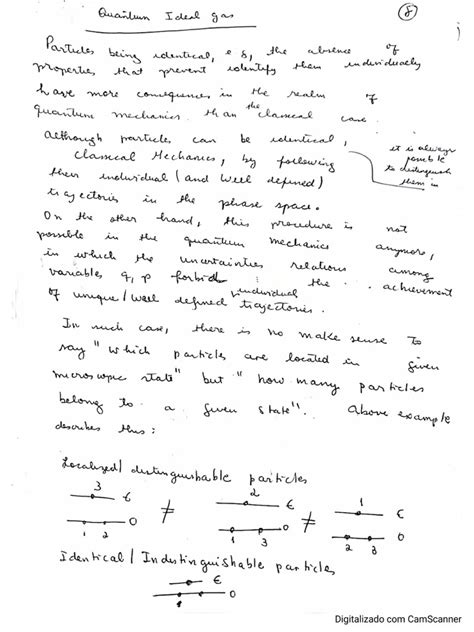 Quantum Ideal gas
8
Particles being identical, e.g., the absence of
properties that prevent identify them individually
have more consequences in the realm of
quantum mechanics than the classical case.
Although particles can be identical, it is always
possible
to distinguish
them in
Classical Mechanics, by following
their individual (and well defined)
trajectories in the phase space.
On the other hand, this procedure is not
possible in the quantum mechanics anymore,
in which the uncertainties relations among
variables q, p forbid the achievement
of unique/well defined individual trajectories.
In such case, there is no make sense to
say "which particles are located in given
microscopic state" but "how many particles
belong to a given state". Above example
describes this:
Localized/distinguishable particles
3 ε ≠ 2 ε ≠ 1 ε
1 2 0 1 3 0 2 3 0
Identical/Indistinguishable particles
ε
0
Digitalizado com CamScanner